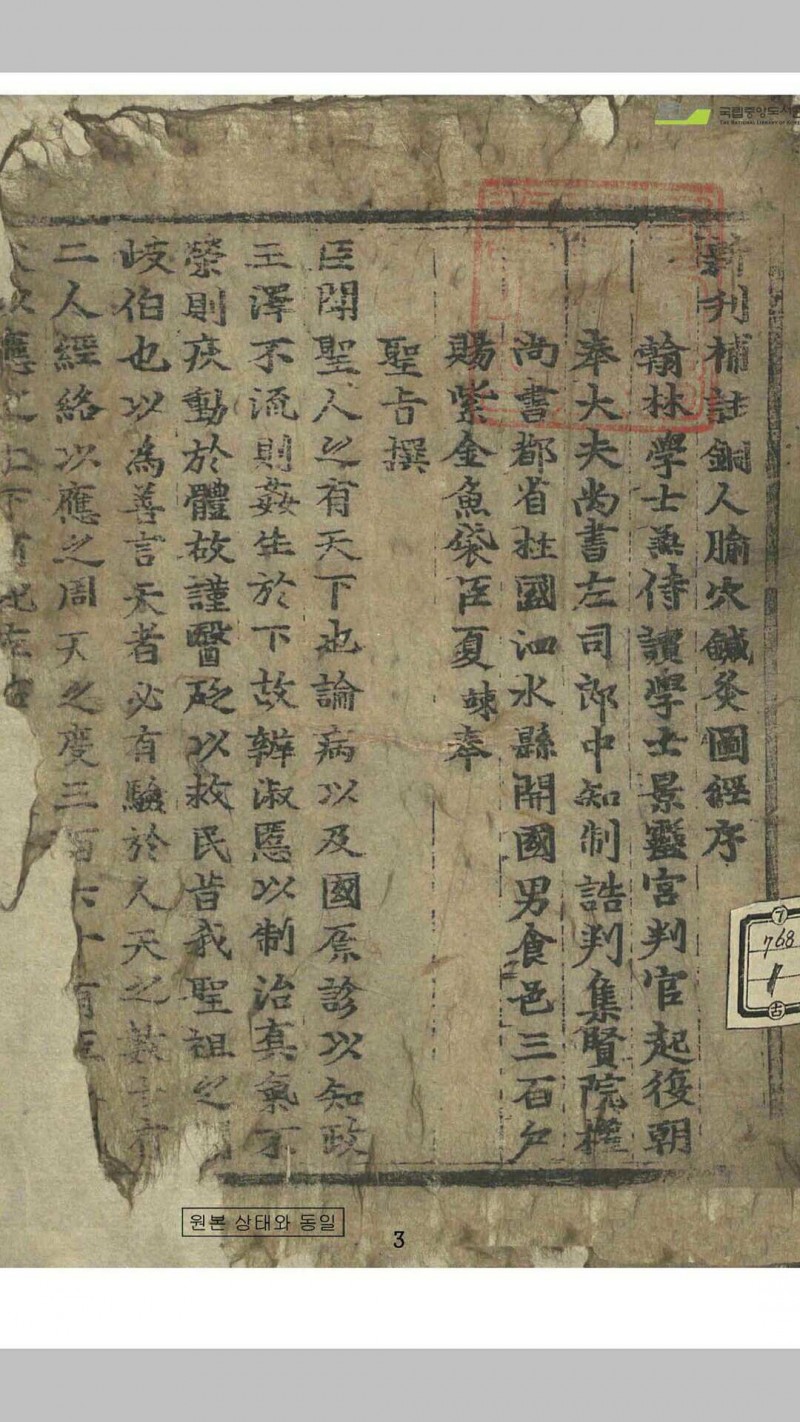 新刊補註銅人腧穴鍼灸圖經序
翰林學士兼侍讀學士景靈宮判官起復朝
奉大夫尚書左司郎中知制誥判集賢院權
尚書都省柱國泗水縣開國男食邑三百戶
賜紫金魚袋臣夏竦奉
聖旨撰
臣聞聖人之有天下也論病以及國原診以知政
王澤不流則姦生於下故辨淑慝以制治真氣不
榮則疢動於體故謹醫砭以救民昔我聖祖之
岐伯也以為善言天者必有驗於人天之數十有
二人經絡以應之周天之度三百六十有五
以應之上下有紀左右
국립중앙도서관
THE NATIONAL LIBRARY OF KOREA
7
768
1
古
원본 상태와 동일
3